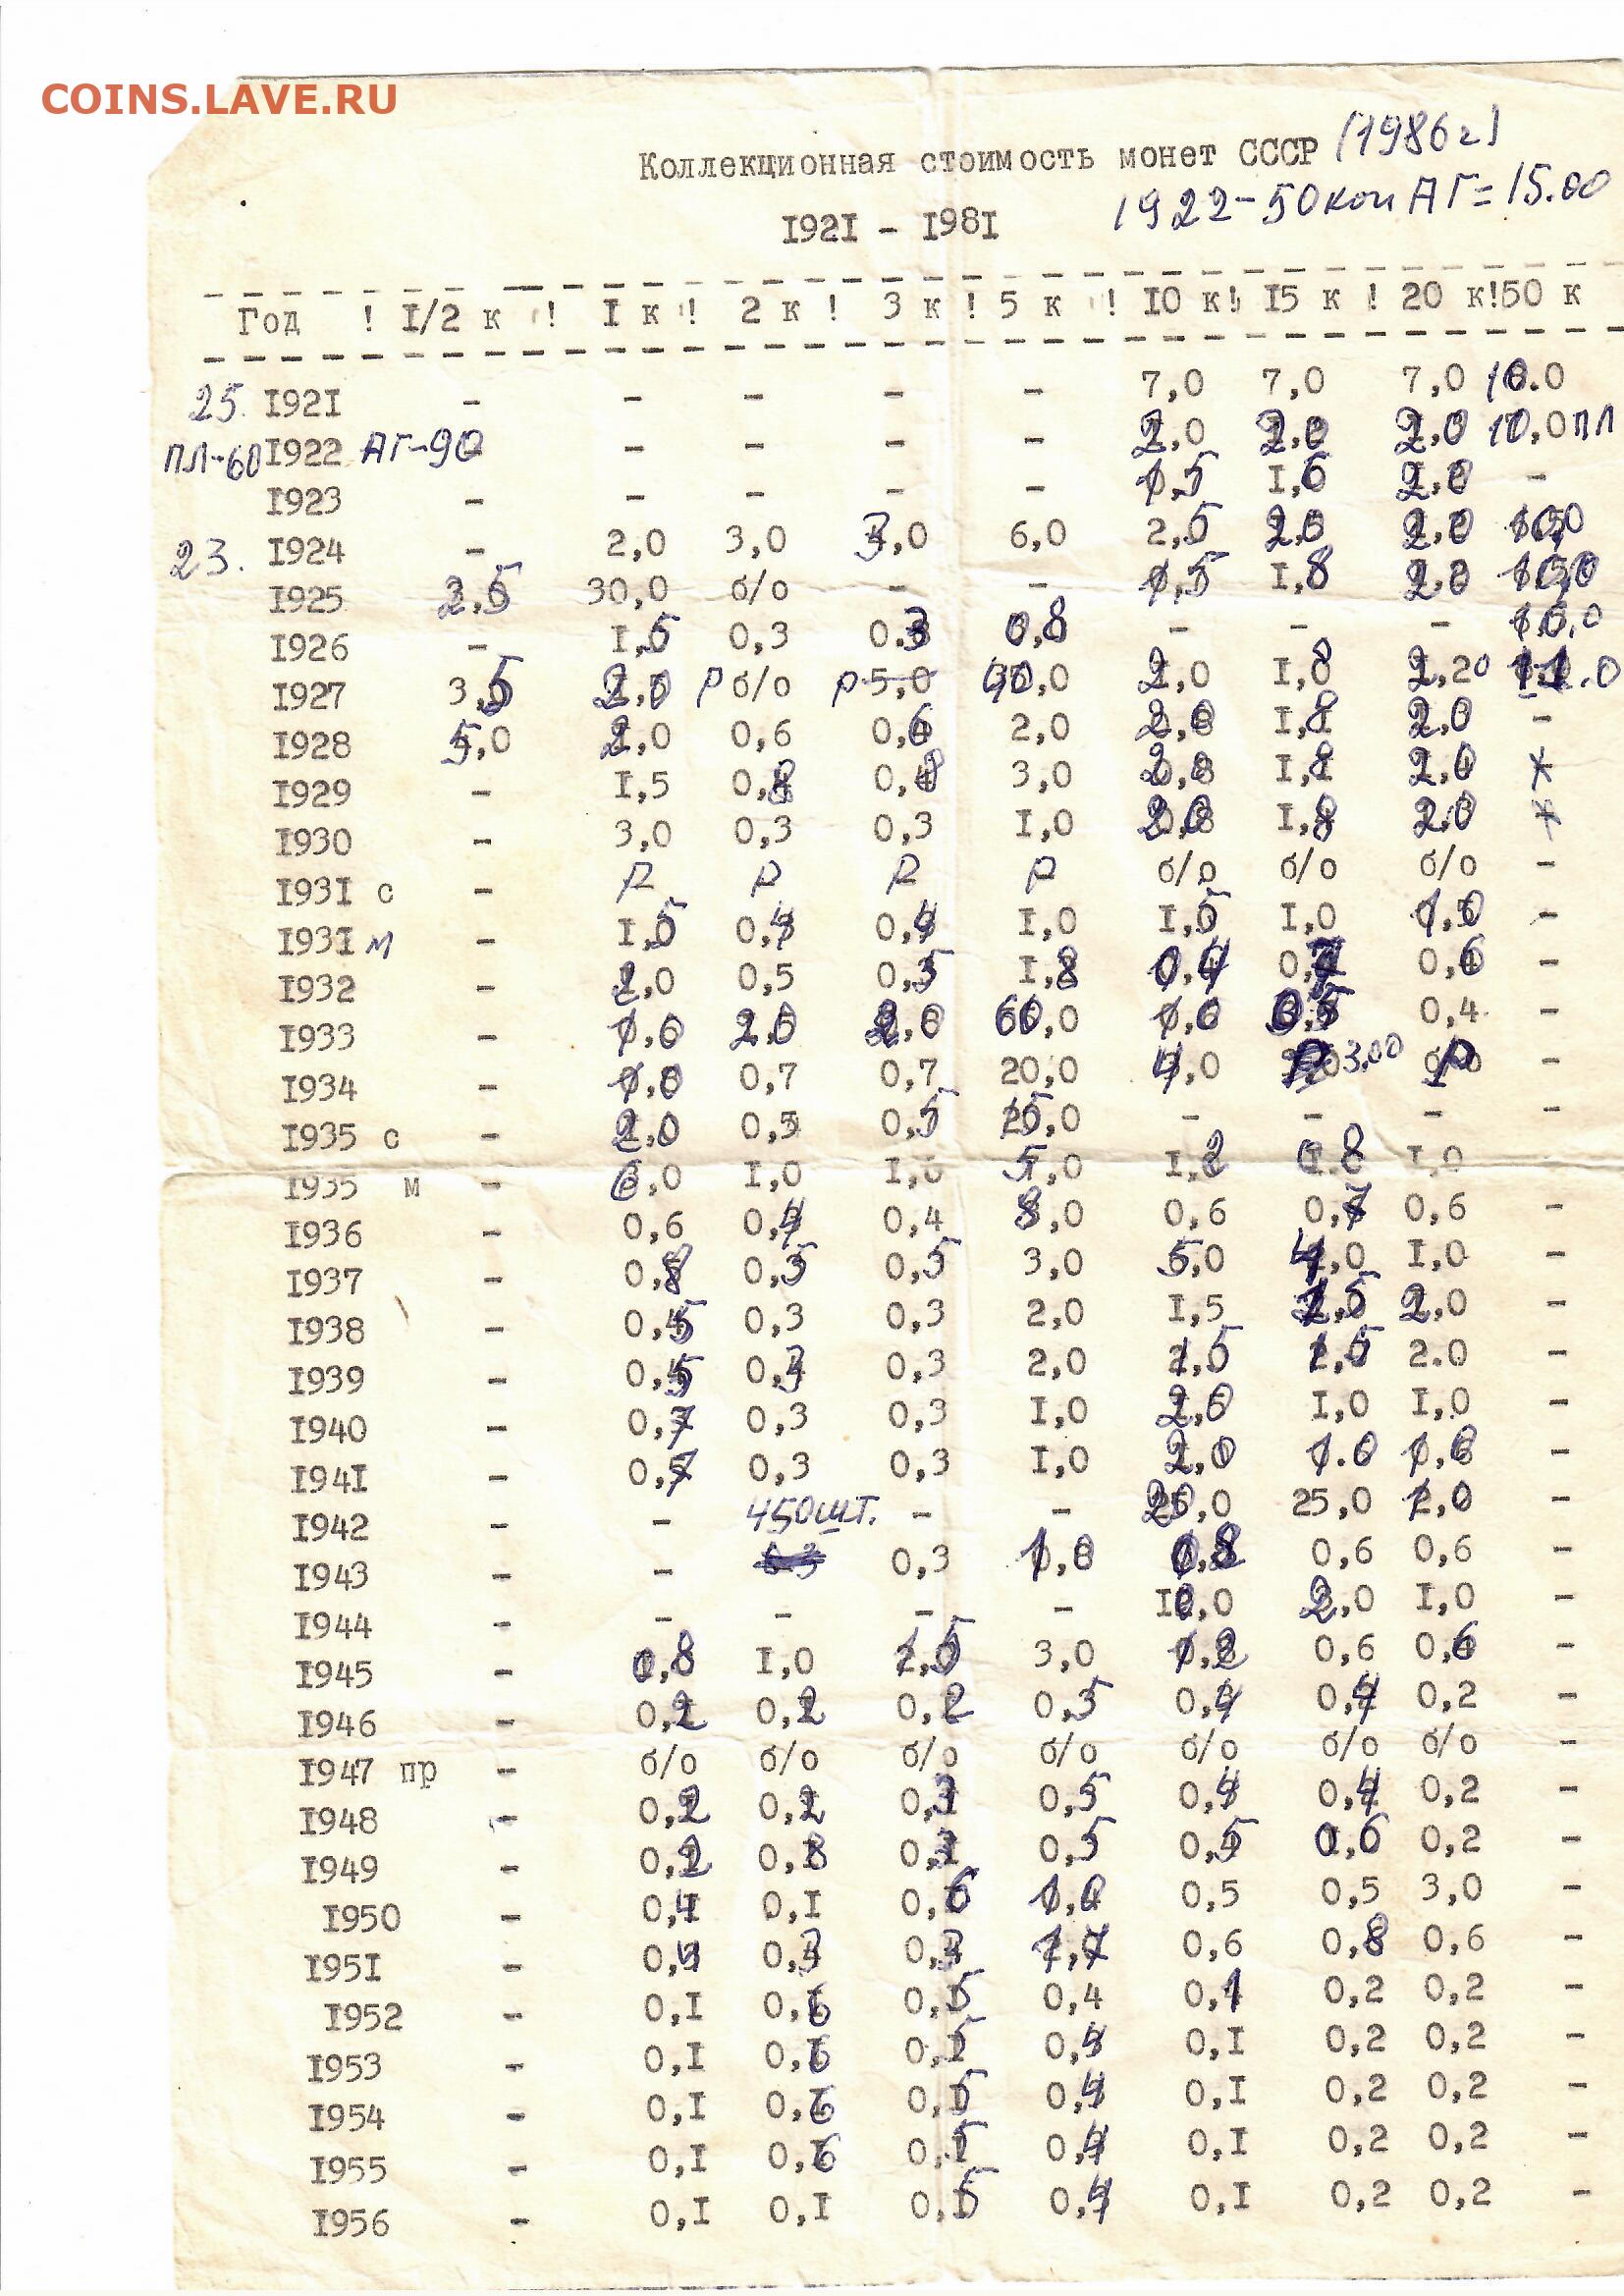 COINS.LAVE.RU
Коллекционная стоимость монет СССР (1986 г)
1922-50 коп АГ = 15.00
I92I - I98I
Год ! I/2 к ! I к ! 2 к ! 3 к ! 5 к ! I0 к! I5 к ! 20 к!50 к
25. I92I - - - - - 7,0 7,0 7,0 10.0
ПЛ-60 I922 АГ-90 - - - - 2,0 2,0 2,0 10,0 ПЛ
I923 - - - - - 1,5 I,6 2,0 -
23. I924 - 2,0 3,0 3,0 6,0 2,5 2,0 2,0
I925 2,5 30,0 б/о - - 1,5 I,8 2,0
I926 - I,5 0,3 0.3 0,8 - - -
I927 3,5 2,0 р б/о р 5,0 2,0 I,8 11.0
I928 5,0 2,0 0,6 0,6 2,0 2,0 I,8 2,0 -
I929 - I,5 0,8 0,8 3,0 2,0 I,8 2,0 *
I930 - 3,0 0,3 0,3 I,0 2,0 I,8 2,0 *
I93I с - Р Р Р Р б/о б/о б/о -
I93I м - I,5 0,4 0,4 I,0 I,5 I,0 -
I932 - 2,0 0,5 0,5 I,8 0,4 0,7 0,6 -
I933 - 1,0 2,0 2,0 60,0 1,0 0,5 0,4 -
I934 - 1,0 0,7 0,7 20,0 4,0 3.00 Р -
I935 с - 2,0 0,5 0,5 - - - -
I935 м - 6,0 I,0 I,0 5,0 I,2 0,8 I,0
I936 - 0,6 0,4 0,4 8,0 0,6 0,7 0,6 -
I937 - 0,8 0,5 0,5 3,0 5,0 4,0 I,0 -
I938 - 0,5 0,3 0,3 2,0 I,5 2,0 -
I939 - 0,5 0,3 0,3 2,0 2.0 -
I940 - 0,7 0,3 0,3 I,0 2,0 I,0 I,0 -
I94I - 0,7 0,3 0,3 I,0 2,0 1.0 1,0 -
I942 - - 450шт. - - 25,0 -
I943 - - 0,3 1,0 0,8 0,6 0,6 -
I944 - - - - - I0,0 2,0 I,0 -
I945 - 0,8 I,0 3,0 0,6 0,6 -
I946 - 0,2 0,2 0,2 0,5 0,4 0,4 0,2 -
I947 пр - б/о б/о б/о б/о б/о б/о б/о -
I948 - 0,2 0,2 0,3 0,5 0,4 0,4 0,2 -
I949 - 0,2 0,8 0,3 0,5 0,5 0,2 -
I950 - 0,4 0,I 0,6 1,0 0,5 0,5 3,0 -
I95I - 0,4 0,3 0,3 0,6 0,8 0,6 -
I952 - 0,I 0,6 0,5 0,4 0,1 0,2 0,2 -
I953 - 0,I 0,6 0,5 0,4 0,I 0,2 0,2 -
I954 - 0,I 0,6 0,5 0,4 0,I 0,2 0,2 -
I955 - 0,I 0,6 0,5 0,4 0,I 0,2 0,2 -
I956 - 0,I 0,I 0,5 0,4 0,I 0,2 0,2 -